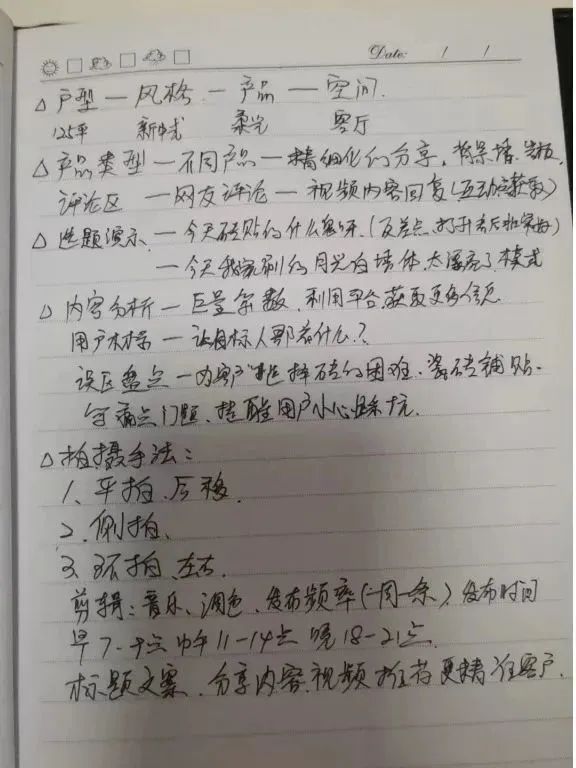 Date: / /
△户型—风格—产品—空间.
125平 新中式 柔光 客厅
△产品类型—不同产品—精细化的分享, 背景墙、岩板,
评论区—网友评论—视频内容回复(互动
△选题演示.—今天砖贴的什么(反差点
—今天我家刷的月光白墙体,太漂亮了模式
△内容分析—巨量算数,利用平台获取更多信息
用户—让目标人群看什么?
误区盘点—为客户选择砖的困难、瓷砖铺贴.
等痛点门题、提醒用户小心踩坑.
△拍摄手法:
1、平拍、后移.
2、侧拍、
3、环拍、左右.
剪辑:音乐、调色、发布频率(一周一条)、发布时间
早7-9点 中午11-14点 晚18-21点.
标题文案、分享内容.视频推荐更精准客户.